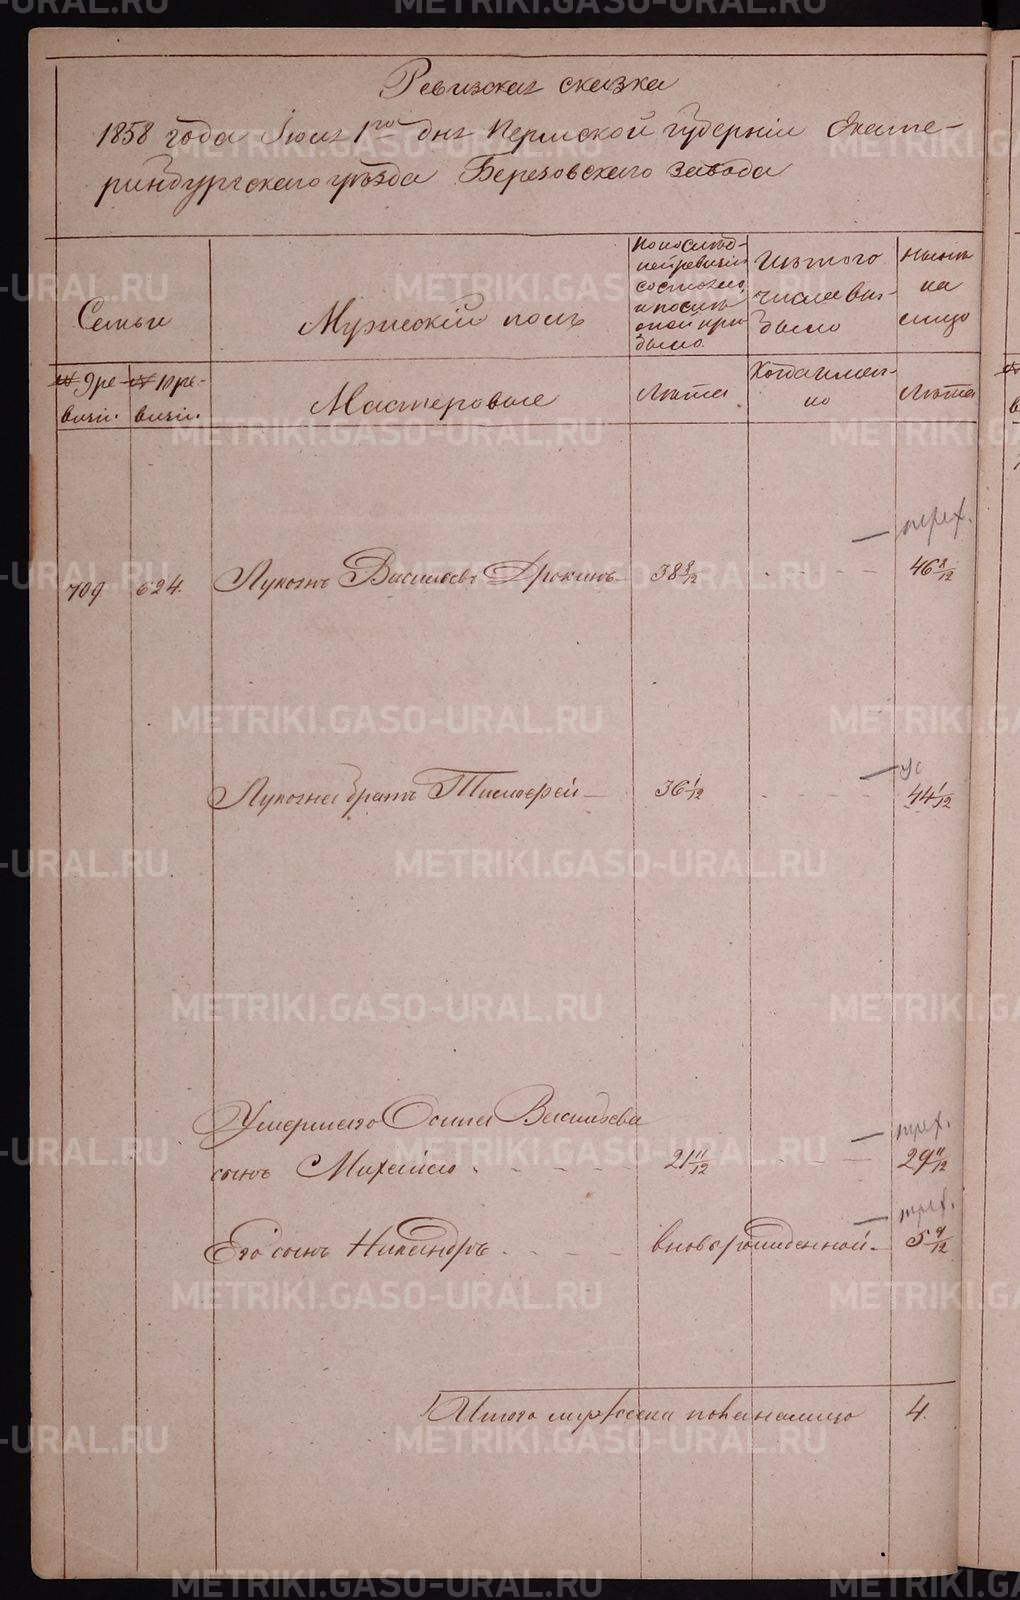 Ревизская сказка
1858 года Июля 1го дня Пермской губернiи Екате-
ринбургскаго уѣзда Березовскаго завода
Семьи
Мужескiй полъ
По послѣд-
ней ревизiи
состояло,
и послѣ
оной при-
было
Изъ того
числа вы-
было
Нынѣ
на
лицо
№ 9 ре-
визiи.
№ 10 ре-
визiи.
Мастеровые
Лѣта
Когда имен-
но
Лѣта
перех.
709 624. Васильевъ 38 8/12 46 8/12
ус
братъ Тимофей 36 1/12 44 1/12
Умершаго Осипа Васильева
перех.
сынъ Михайло 21 11/12 29 11/12
перех.
Его сынъ Никаноръ вновьрожденной 5 9/12
Итого мужеска пола налицо 4.
METRIKI.GASO-URAL.RU